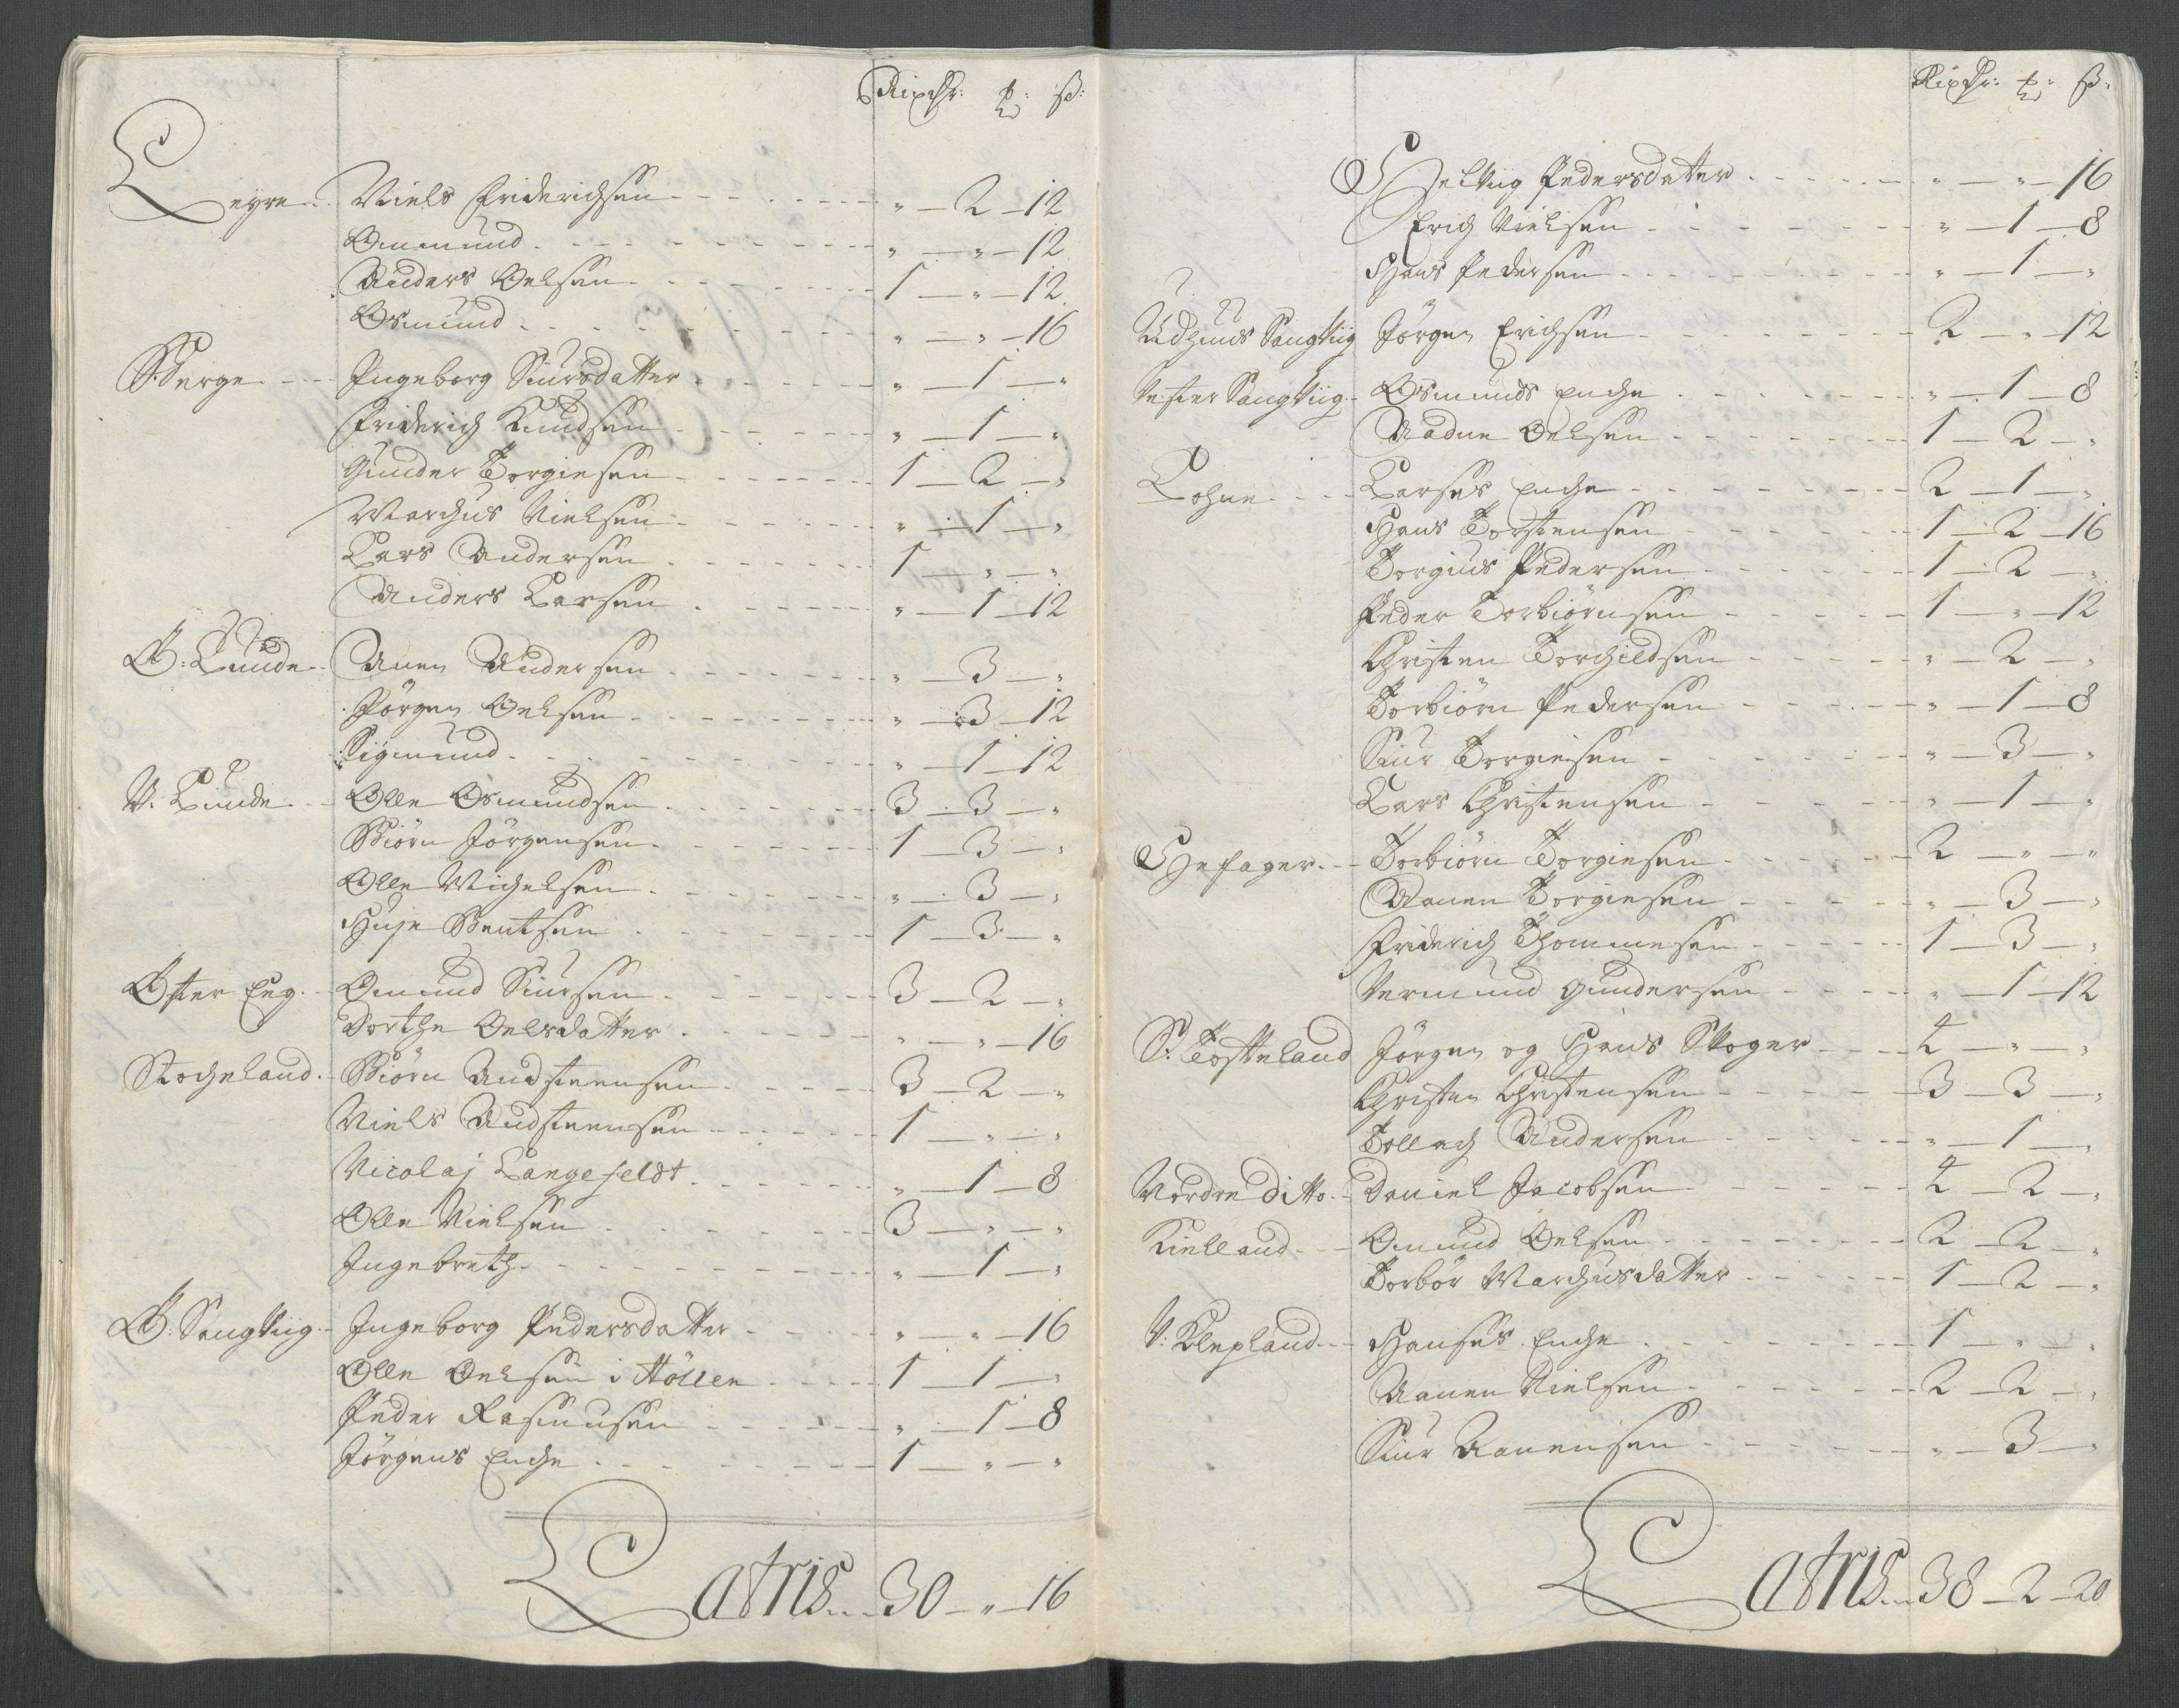 Rixdr: ℔: ß:
Leyre. Niels Friderichsen - - - „ - 2 - 12
Ommund - - - „ - „ - 12
Anders Oelsen - - - 1 - „ - 12
Osmund - - - „ - „ - 16
Berge - Ingeborg Siursdatter - - - „ - 1 - „
Friderich Knudsen - - - „ - 1 - „
Gunder Torgiesen - - - 1 - 2 - „
Marchus Nielsen - - - „ - 1 - „
Lars Andersen - - - 1 - „ - „
Anders Larsen - - - „ - 1 - 12
Ø: Lunde - Anen Andersen - - - „ - 3 - „
Jørgen Oelsen - - - „ - 3 - 12
Sigmund - - - „ - 1 - 12
V. Lunde - Olle Osmundsen - - - 3 - 3 - „
Biørn Jørgensen - - - 1 - 3 - „
Olle Michelsen - - - „ - 3 - „
Huje Bentsen - - - 1 - 3 - „
Øster Eeg - Omund Siursen - - - 3 - 2 - „
Dorthe Oelsdatter - - - „ - „ - 16
Stocheland - Biørn Audsteensen - - - 3 - 2 - „
Niels Audsteensen - - - 1 - „ - „
Nicolaj Langefeldt - - - „ - 1 - 8
Olle Nielsen - - - 3 - „ - „
Ingebreth - - - „ - 1 - „
Ø: Sangviig - Ingeborg Pedersdatter - - - „ - „ - 16
Olle Oelsen i Höllen - - - 1 - 1 - „
Peder Rasmusen - - - „ - 1 - 8
Jørgens Enche - - - 1 - „ - „
Latris - 30 - „ - 16
Rixdr: ℔: ß:
Selviig Pedersdatter - - - „ - „ - 16
Erich Nielsen - - - „ - 1 - 8
Hans Pedersen - - - „ - 1 - „
Udhuus Sangviig Jørgen Erichsen - - - 2 - „ - 12
Vester Sangviig - Osmunds Enche - - - „ - 1 - 8
Aadne Oelsen - - - 1 - 2 - „
Lohne - Larses Enche - - - 2 - 1 - „
Hans Torstensen - - - 1 - 2 - 16
Torgius Pedersen - - - 1 - 2 - „
Peder Torbiørnsen - - - 1 - „ - 12
Christen Torchildsen - - - „ - 2 - „
Torbiørn Pedersen - - - „ - 1 - 8
Siur Torgiesen - - - „ - 3 - „
Lars Christensen - - - „ - 1 - „
Hefager - Torbiørn Torgiesen - - - 2 - „ - „
Aanen Torgiesen - - - „ - 3 - „
Friderich Thommesen - - - 1 - 3 - „
Vermund Gundersen - - - „ - 1 - 12
S: Tofteland Jørgen og Hans Skoger - - - 4 - „ - „
Christen Christensen - - - 3 - 3 - „
Tollach Andersen - - - „ - 1 - „
Nordre Ditto - Daniel Jacobsen - - - 4 - 2 - „
Kielland - Omund Oelsen - - - 2 - 2 - „
Torbør Marchusdatter - - - 1 - 2 - „
V: Klepland - Hanses Enche - - - 1 - „ - „
Aanen Nielsen - - - 2 - 2 - „
Siur Aanensen - - - „ - 3 - „
Latris - 38 - 2 - 20